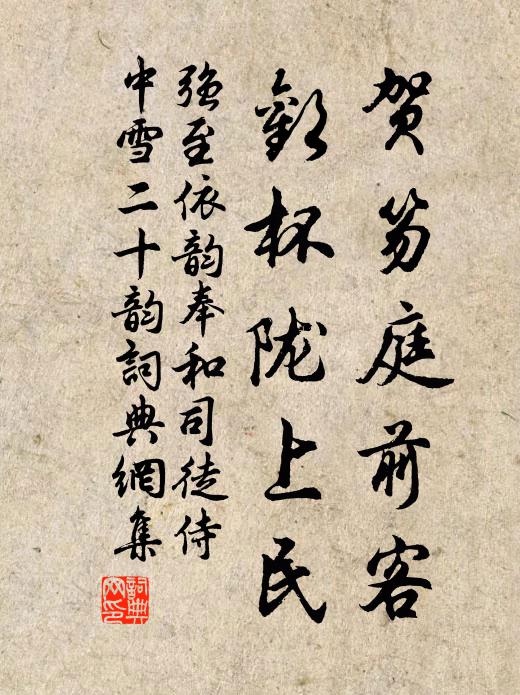 贺笏庭前客
欢杯陇上民
强至依韵奉和司徒侍
中雪二十韵詞典網集
詞典
网印